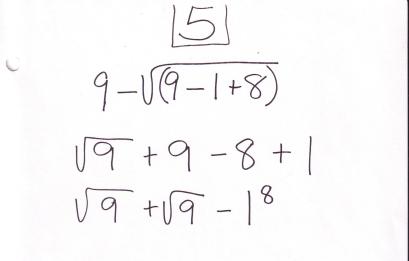 5
9-√(9-1+8)
√9 + 9 - 8 + 1
√9 + √9 - 1⁸